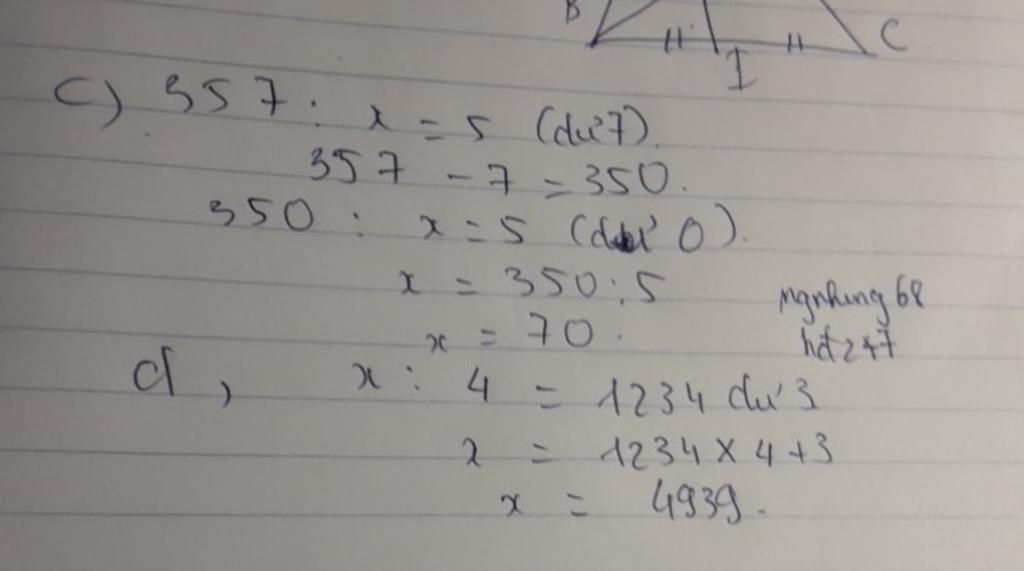 B
C
I
c) 357 : x = 5 (dư 7).
357 - 7 = 350.
350 : x = 5 (dư 0).
x = 350 : 5
x = 70.
mgnhung68
hd247
d, x : 4 = 1234 dư 3
x = 1234 x 4 + 3
x = 4939.